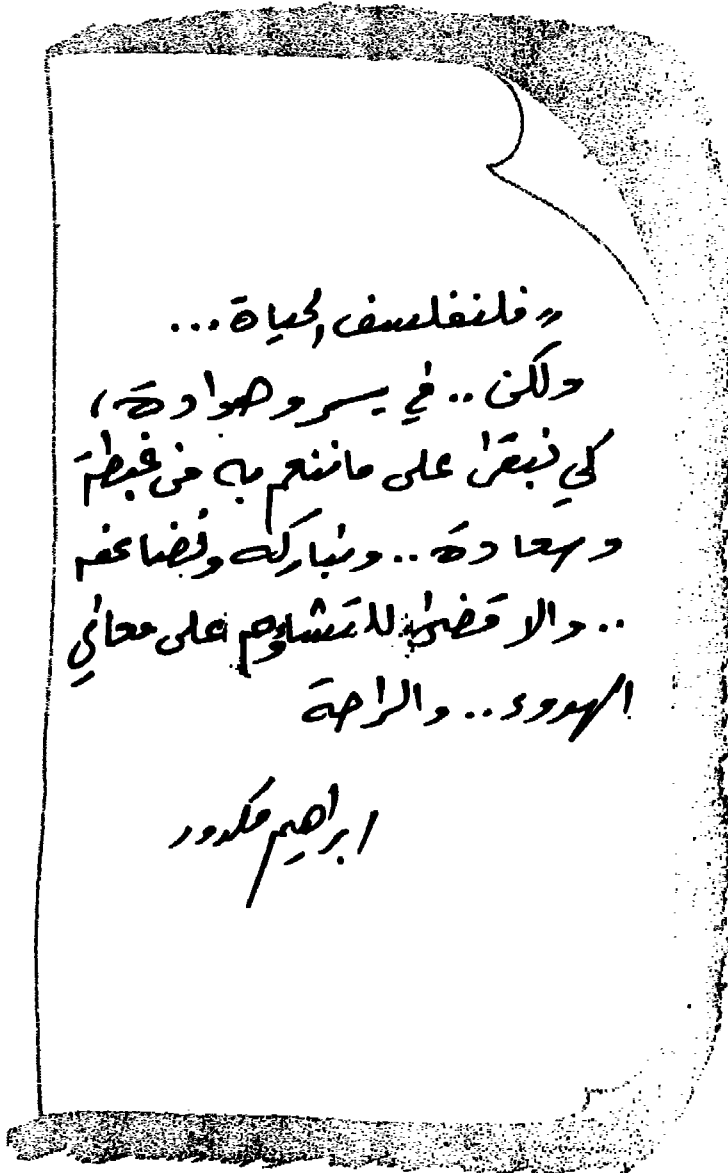 « فلنفلسف الحياة ...
ولكن .. في يسر وهوادة ،
كي نبقى على ما ننعم به من غبطة
وسعادة .. ونباركه ونضاعفه
.. والا قضى التشاؤم على معاني
الهدوء .. والراحة
ابراهيم مدكور